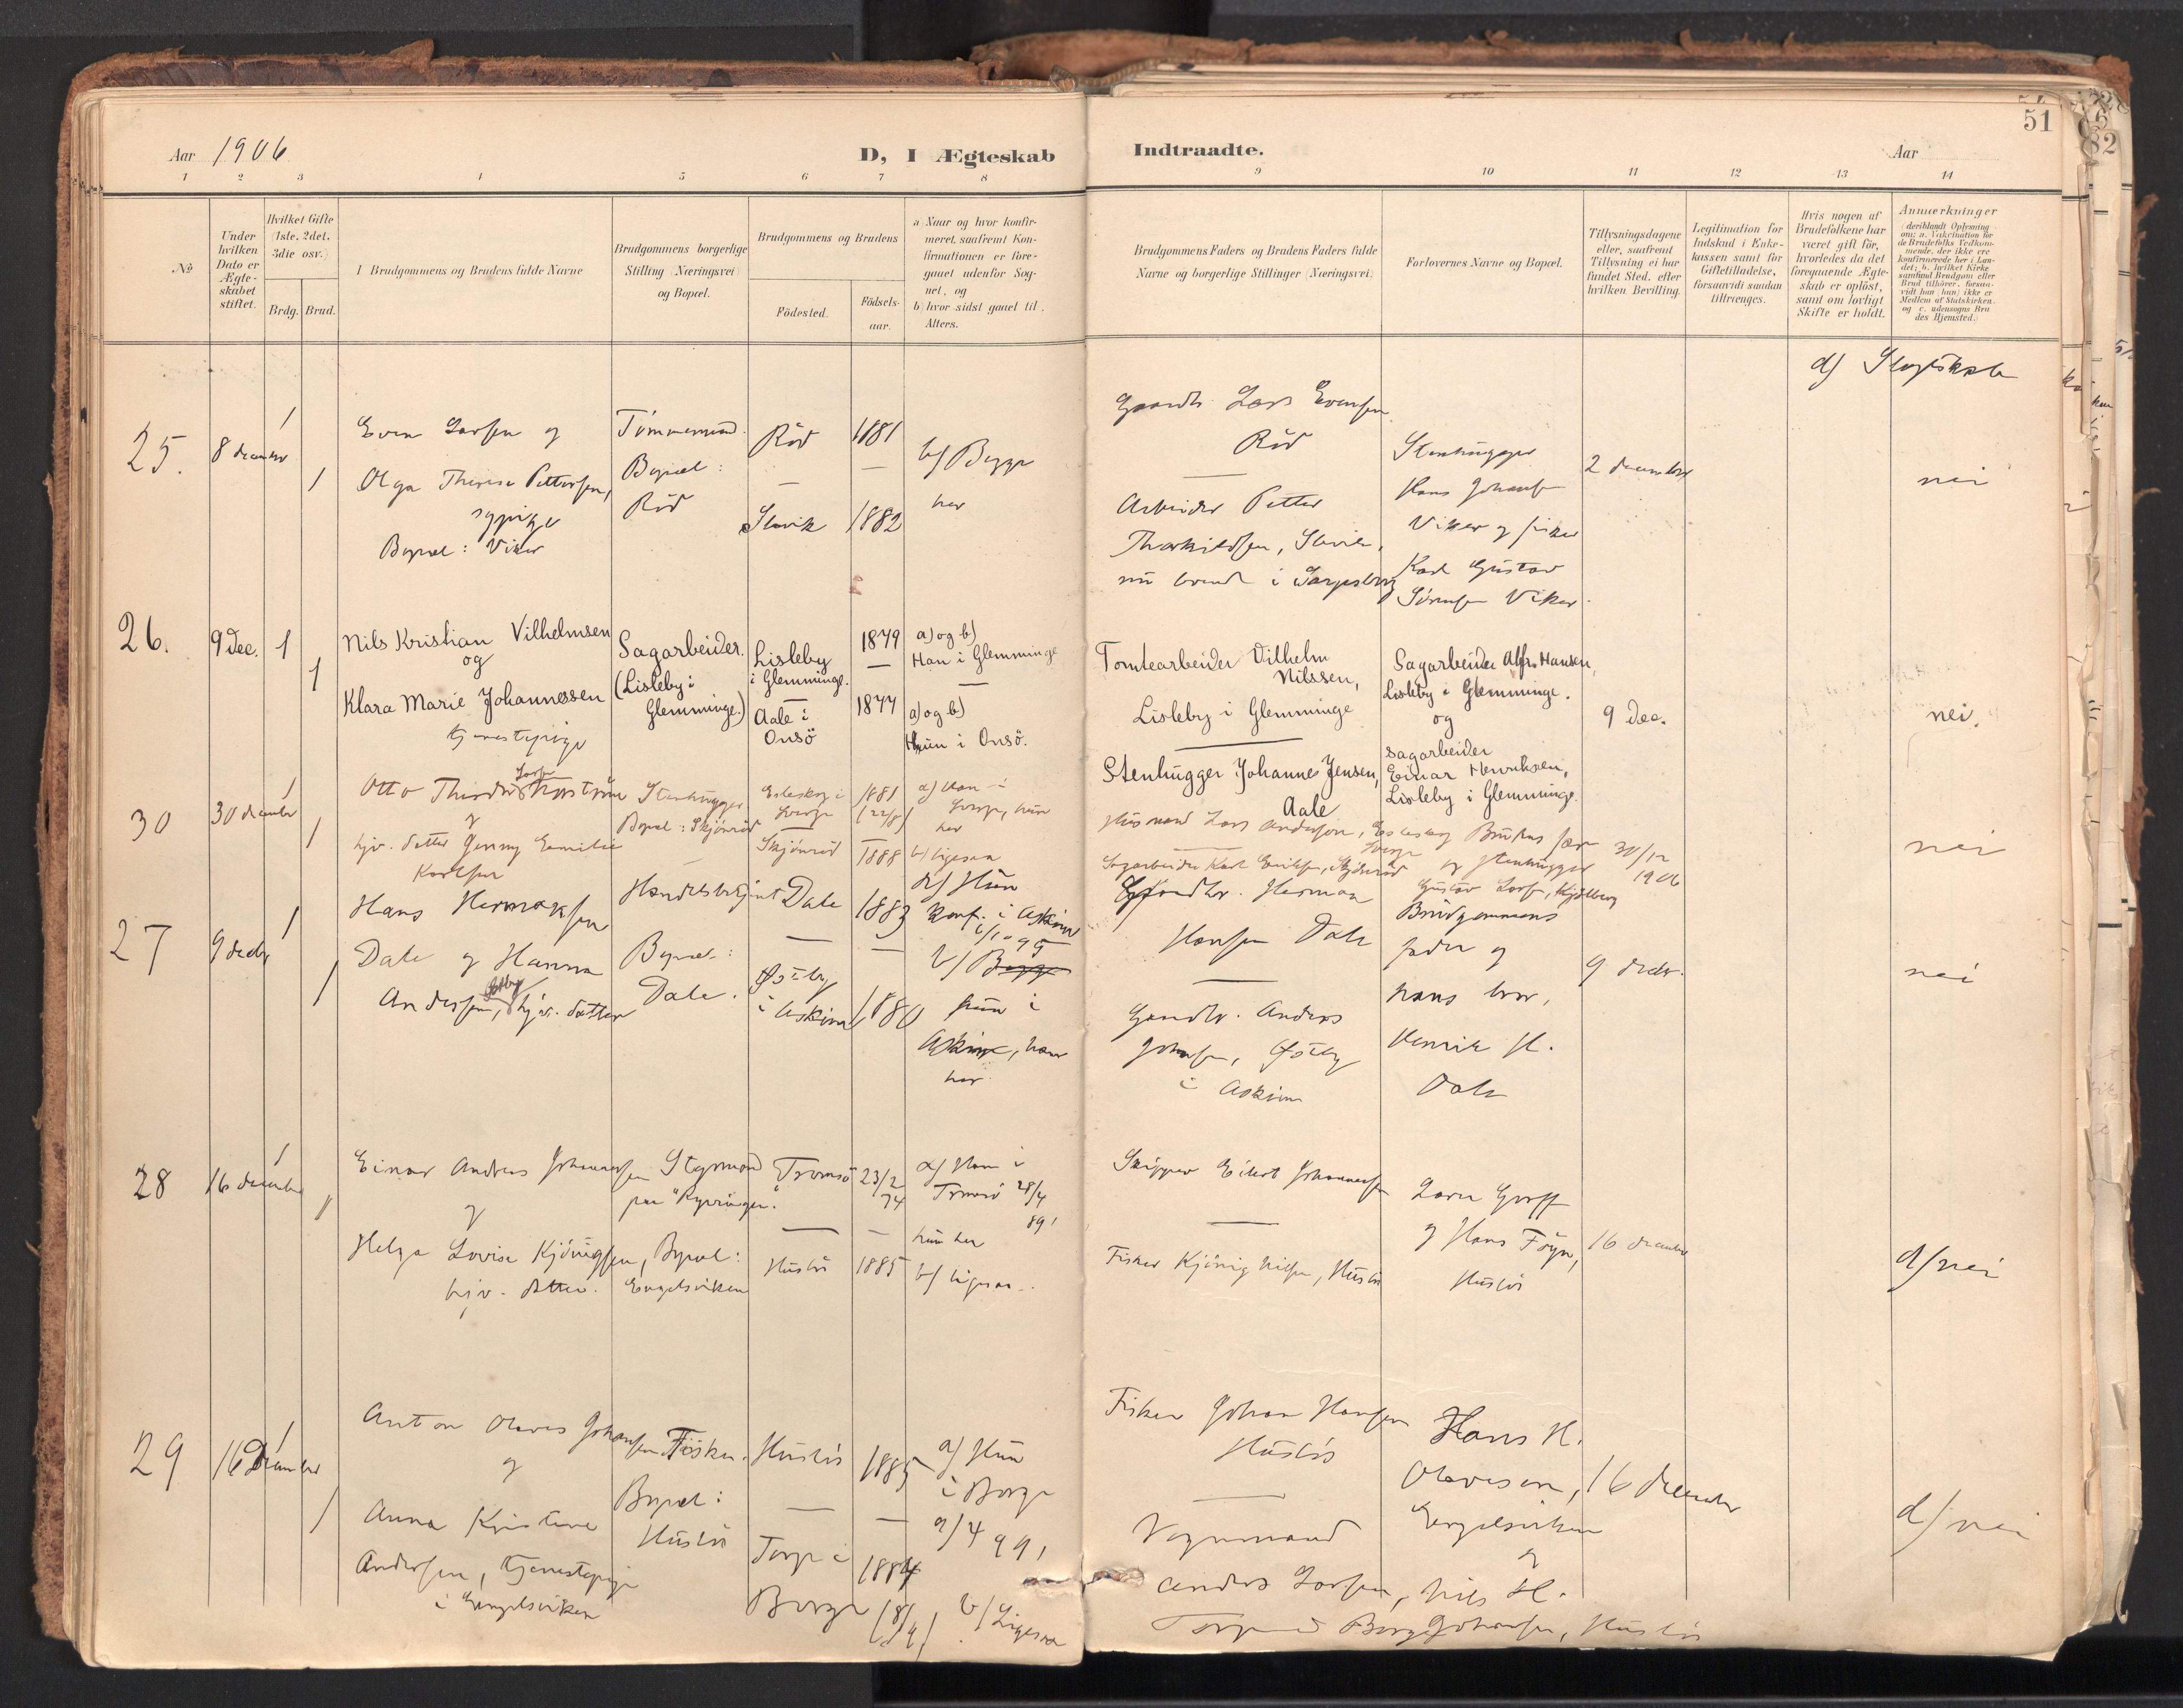 Aar 1906
D, I Ægteskab
Indtraadte.
Aar
51
82
1 2 3 4 5 6 7 8 9 10 11 12 13 14
No
Under hvilken Dato er Ægteskabet stiftet.
Hvilket Gifte (1ste, 2det, 3die osv.)
Brdg. Brud.
I Brudgommens og Brudens fulde Navne
Brudgommens borgerlige Stilling (Næringsvei) og Bopæl.
Brudgommens og Brudens
Födested.
Födselsaar.
a) Naar og hvor konfirmeret, saafremt Konfirmationen er foregaaet udenfor Sognet, og
b) hvor sidst gaaet til Alters.
Brudgommens Faders og Brudens Faders fulde Navne og borgerlige Stillinger (Næringsvei)
Forlovernes Navne og Bopæl.
Tillysningsdagene eller, saafremt Tillysning ei har fundet Sted, efter hvilken Bevilling.
Legitimation for Indskud i Enkekassen samt for Giftetilladelse, forsaavidt saadan tiltrænges.
Hvis nogen af Brudefolkene har været gift för, hvorledes da det foregaaende Ægteskab er oplöst, samt om lovligt Skifte er holdt.
Anmærkninger (deriblandt Oplysning om: a. Vakcination for de Brudefolks Vedkommende, der ikke ere konfirmerede her i Landet; b. hvilket Kirkesamfund Brudgom eller Brud tilhörer, forsaavidt han (hun) ikke er Medlem af Statskirken, og c. udensogns Brudes Hjemsted.)
25.
8 december
1
1
Even Larsen og
Olga Therese Pettersen,
sypige
Bopæl: Viker
Tömmermand.
Bopæl:
Röd
Röd
Slevik
1881
1882
b) Begge
her
Gaardbr. Lars Evensen
Röd
Arbeider Petter
Thorkildsen, Slevik,
nu boende i Sarpsborg
Stenhugger
Hans Johansen
Viker og fisker
Karl Gustav
Sörensen Viker.
2 december
d) Slegtskab
nei
26.
9 Dec.
1
1
Nils Kristian Vilhelmsen
og
Klara Marie Johannessen
tjenestepige
Sagarbeider.
(Lisleby i
Glemminge.)
Lisleby
i Glemminge.
Aale i
Onsö
1879
1877
a) og b)
Han i Glemminge
a) og b)
Hun i Onsö.
Tomtearbeider Vilhelm
Nilssen,
Lisleby i Glemminge
Stenhugger Johannes Jensen,
Aale
Sagarbeider Alfr. Hansen,
Lisleby i Glemminge.
og
sagarbeider
Einar Henriksen,
Lisleby i Glemminge.
9 Dec.
nei.
30
30 december
1
1
og
hjv. datter Jenny Emilie
Karlsen
Stenhugger
Bopæl: Skjönröd
Sverge
Skjönröd
1881
(22/8)
1888
a) Han i
Sverge, hun
her
b) Ligesaa
Husmand Lars Andersson,
Sverge
Sagarbeider Karl Eriksen, Skjönröd
Brudens far
og stenhugger
Gustav Larsen, Kjölberg
30/12
1906
nei
27
9 decbr
1
1
Hans Hermansen
Dale og Hanna
Andersen, hjv. datter
Handelsbetjent
Bopæl:
Dale.
Dale
i Askim
1883
1880
a) Hun
konf. i Askim
6/10 95
b) Begge
hun i
Askim, han
her
Gaardbr. Herman
Hansen Dale
Gaardbr. Anders
Johansen,
i Askim
Brudgommens
fader og
hans bror,
Henrik H.
Dale
9 decbr.
nei
28
16 december
1
1
Einar Andreas Johannessen
og
Helga Lovise Kjönigsen,
hjv. datter.
Styrmand
paa "Kyvringen".
Bopæl:
Engelsviken
Tromsö
Huslös
23/2
74
1885
a) Han i
Tromsö 28/4
89,
hun her
b) Ligesaa.
Skipper Eilert Johannessen
Fisker Kjönig Nilsen, Huslös
og Hans Föyn,
Huslös
16 december
d) nei
29
16 December
1
1
Anton Olaves Johansen
og
Anna Kristine
Andersen, tjenestepige
i Engelsviken
Fisker.
Bopæl:
Huslös
Huslös
Torp i
Borge
1885
1884
(8/4)
a) Hun
i Borge
9/4 99,
b) Ligesaa
Fisker Johan Hansen
Huslös
Vognmand
Anders Larsen,
Torp i Borge
Hans H.
Olavesen,
Engelsviken
og
Nils H.
Johansen, Huslös
16 december
d) nei